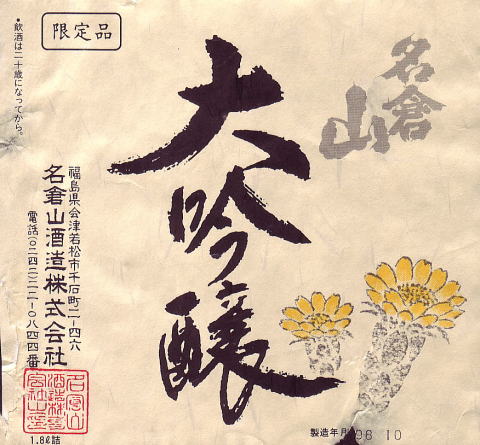 名倉山
大吟醸
限定品
•飲酒は二十歳になってから。
福島県会津若松市千石町二ー四六
名倉山酒造株式会社
電話(〇二四二)二二ー〇八四四番
1.8ℓ詰
製造年月 98.10